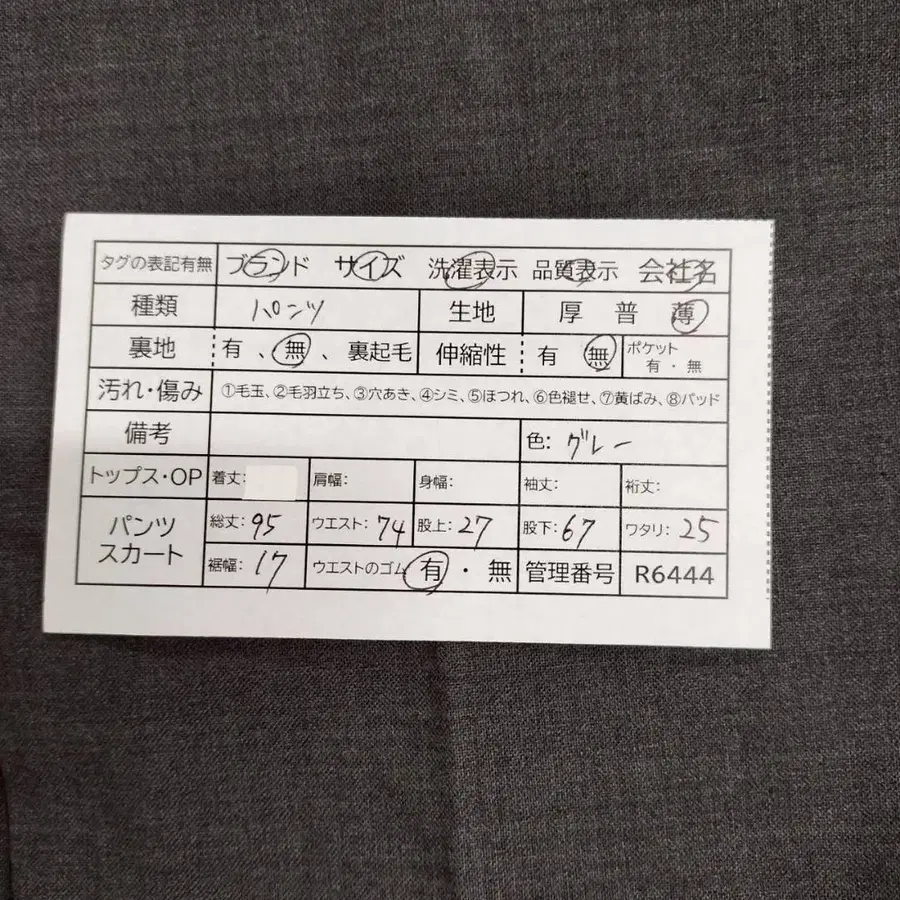 タグの表記有無 ブランド サイズ 洗濯表示 品質表示 会社名
種類 パンツ 生地 厚 普 薄
裏地 有、無、裏起毛 伸縮性 有 無 ポケット 有・無
汚れ・傷み ①毛玉、②毛羽立ち、③穴あき、④シミ、⑤ほつれ、⑥色褪せ、⑦黄ばみ、⑧パッド
備考 色: グレー
トップス・OP 着丈: 肩幅: 身幅: 袖丈: 裄丈:
パンツ スカート 総丈: 95 ウエスト: 74 股上: 27 股下: 67 ワタリ: 25
裾幅: 17 ウエストのゴム 有・無 管理番号 R6444